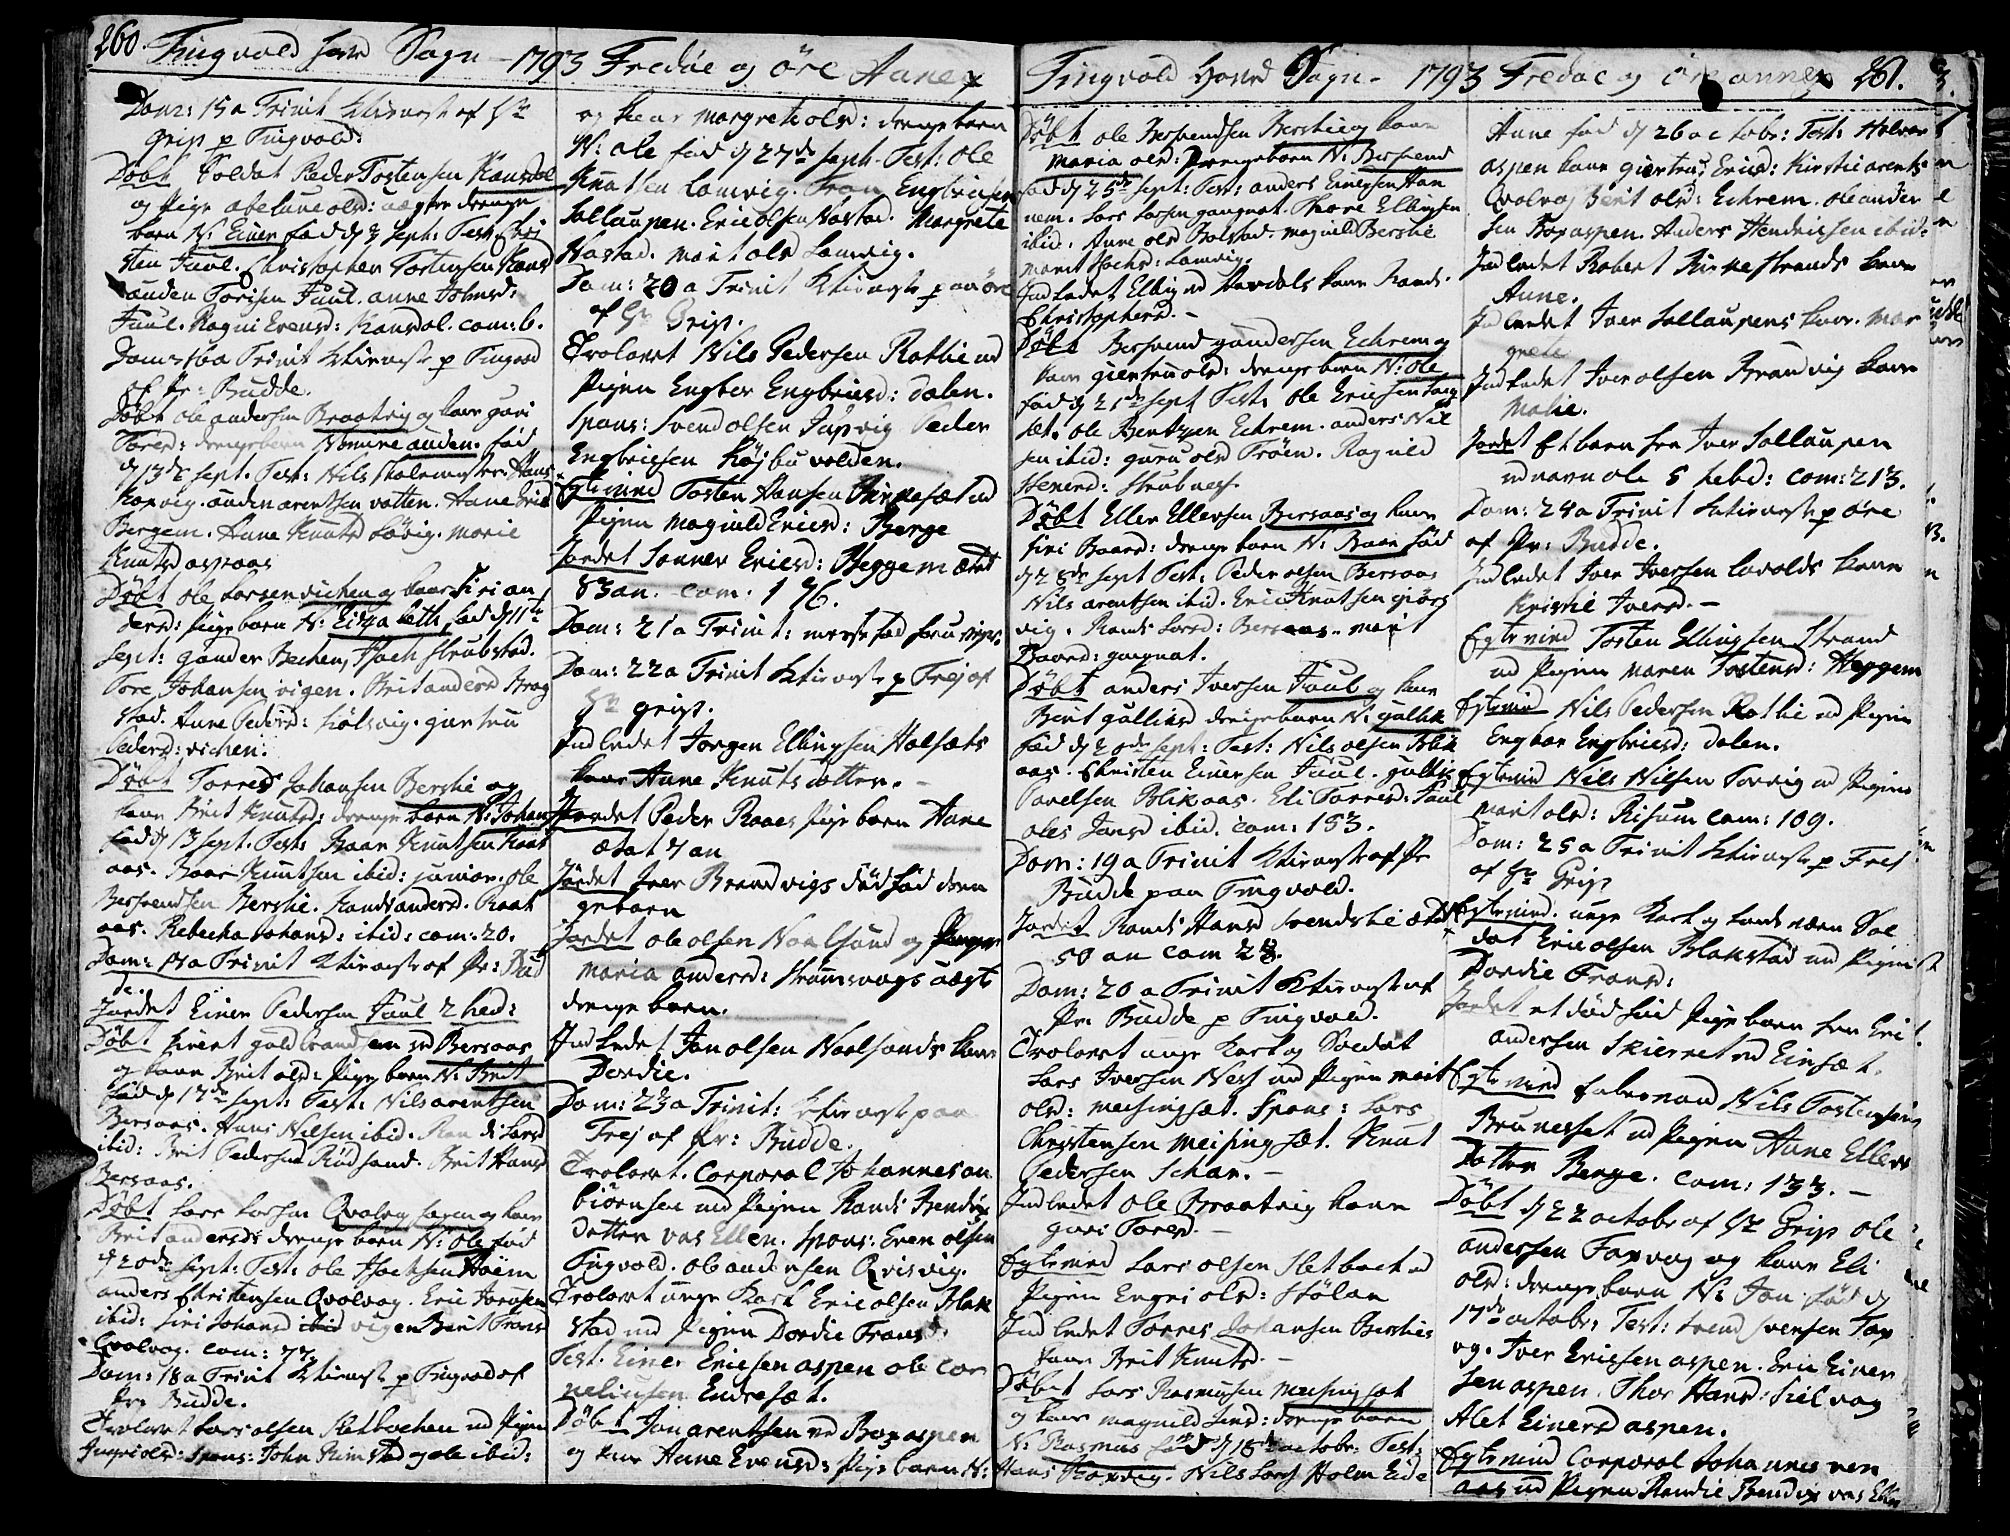 260. Tingvold hoved Sogn - 1793 Fredøe og Öre Annex
Dom: 15 a Trinit Ktieneste af Hr
Grip p Tingvold.
Døbt Soldat Peder Tostensen Kansdal
og Pige abelune olsd: uægte drenge
barn N: Einer fød d 3 Sept: Test: Chri
sten Juul. Christopher Tostensen Kans
anden Torisen Juul. anne Johnsd:
Juul. Ragni Evensd: Kansdal. com: 6.
Dom: 16 a Trinit Ktieneste p Tingvold
af Pr: Budde.
Døbt ole andersen Braatvig og kone guri
Toresd: drengebarn Nomine anden. fød
d 13de Sept. Test: Nils skolemester Hans
Koxvig. anden arentsen vatten. Hane Erics
Bergem. Anne Knutsd Løvig. Marie
Knutsd aspaas
Døbt ole Larsen vichen og kone Siri an
dersd: Pige barn N: Eliza beth, fød d 11te
Sept: gunder Bechen, Isach strubstad.
Tore Johansen vigen. Brit andersd Brag
stad. Anne Pedersd: Kølsvig. giertru
Pedersd: vichen.
Døbt Torres Johansen Berslie og
kone Brit Knutsd: drenge barn N: Johan
fød d 13 Sept. Test: Baar Knutsen Raat
aas. Baar Knutsen ibid: junior. ole
Bersvendsen Berslie. Randi andersd. Raat
aas. Rebecka Johansd: ibid: com: 20.
Dom: 17 a Trinit Ktieneste af Pr: Bud
de.
Jordet Einer Pedersen Juul 2 hed:
Døbt Sivert guldbrandsen ved Bersaas
og kone Brit olsd: Pige barn N: Brit
fød d 17de Sept: Test: Nils arentsen
Bersaas. Hans Nilsen ibid. Randi Larsd
ibid: Brit Pedersd Rødsand. Brit Hansd
Bersaas.
Døbt Lars Larsen Qvalvog hagen og kone
Brit andersd: drenge barn N: Ole fød
d 20de Sept: Test: ole Isachsen Haem
anders Christensen Qvalvog. Eric Joransen
ibid: Siri Johansd ibid vigen Berit Fransd
Qvalvog. com: 77
Dom: 18 a Trinit Ktieneste p Tingvold af
Pr: Budde.
Trolovet Lars olsen Sletbachen ved Pigen
Ingri olsd: Spons: John Rimstad og ole ibid:

og kone Margrete olsd: drenge barn
N: ole fød d 27de Sept. Test: ole
Knutsen Lamvig. Fran Engbrigtsen
Sollaupen. Eric olsen Nastad. Margrete
Nastad. Marit olsd Lamvig.
Dom: 20 a Trinit Ktieneste paa öre
af Hr Grip.
Trolovet Nils Pedersen Rotlie ved
Pigen Engber Engbricsd: dalen.
Spons: Svend olsen Jupvig Peder
Engbricsen Højbuvolden.
Egtevied Tosten Hansen Birkesæt ved
Pigen Magnild Ericsd: Berge
Jordet Sonnev Ericsd: Heggem ætat
83 an. com. 176.
Dom: 21 a Trinit: messefald
Dom: 22 a Trinit Ktieneste p Frej af
Hr Grip.
Indledet Jorgen Ellingsen Halsæts
kone Anne Knutsdotter. -
Jordet Peder Raaes Pige barn Anne
ætat 7 an
Jordet Iver Brandvigs Dødfød dren
gebarn
Jordet ole olsen Naalsund og Pigen
Maria andersd: Strømsvogs uægt
drenge barn.
Indledet Jon olsen Naalsunds kone
Dordie.
Dom: 23 a Trinit: Ktieneste paa
Frej af Pr: Budde.
Trolovet. Corporal Johannes an
biörnsen ved Pigen Randi Bendix
datter vas Ellen. Spons: Even olsen
Tingvold. ole andersen Qvisvig.
Trolovet unge Karl Eric olsen Blak
stad ved Pigen Dordie Fransd:
Test. Einer Ericsen aspen ole Cor
neliussen Endresæt.
Døbt Jon arentsen ved Boxaspen
og kone Anne Evensd: Pige barn N:

Tingvold Hoved Sogn - 1793 Fredøe og öre annex 261.
Døbt ole Bersvendsen Berslie og kone
Maria olsd: drengebarn N: Bersvend
fød d 25de Sept: Test: anders Einersen Han
nem. Lars Larsen gangnat. Thore Ellingsen
ibid. Anne olsd Bolstad. Magnild Berslie
Marit Isachsd: Lamvig.
Indledet Elling ved Aarsdals kone Randi.
Christophersd. -
Døbt Bersvend gundersen Echrem og
kone giertru olsd: drenge barn N: ole
fød d 21de Sept Test: ole Ericsen Torg
sæt. ole Bentzen Echrem. anders Nil
sen ibid: guru olsd Trøen. Ragnild
Stenersd: Strubness.
Døbt Eller Ellevsen Bersaas og kone
Siri Baarsd: drenge barn N: Baar fød
d 28de Sept Test: Peder olsen Bersaas
Nils arentsen ibid. Eric Knutsen giørs
vig. Randi Larsd: Bersaas. Marit
Baarsd: gagnat.
Døbt anders Iversen Juul og kone
Berit gulliksd drenge barn N: gullik
fød d 20de Sept: Test: Nils olsen Blik
aas. Christen Einersen Juul. gullik
Povelsen Blikaas. Eli Torresd: Juul
oles Jonsd ibid. com: 153.
Dom: 19 a Trinit Ktieneste af Pr
Budde paa Tingvold.
Jordet Randi Hansd Svendslie ætat
50 an com 28.
Dom: 20 a Trinit Ktieneste af
Pr. Budde p Tingvold.
Trolovet unge Karl og Soldat
Lars Iversen Ness ved Pigen Marit
olsd: Meisingsæt. Spons: Lars
Christensen Meisingsæt. Knut
Pedersen Schar. -
Indledet ole Braatvig kone
guri Toresd. -
Egtevied Lars olsen Sletbach ved
Pigen Engri olsd: Stølan
Indledet Torres Johansen Berslies
kone Brit Knutsd. -
Døbt Lars Rasmusen Meisingsæt
og kone Magnild Larsd: drenge barn
N: Rasmus fød d 18de octobr: Test:
Hans Koxvig. Nils Larss Holm Eide

Anne fød d 26 octobr: Test: Halvor
aspen kone giertru Ericsd: Kirstie arents
Qvalvog Berit olsd: Echrem. ole ander
sen Boxaspen. Anders Hendricsen ibid:
Indledet Robert Kirkestrands kone
Anne.
Indledet Iver Sollaupens kone. Mar
grete
Indledet Iver olsen Brandvig kone
Malie.
Jordet Et barn fra Iver Sollaupen
ved navn ole 5 hebd: com: 213.
Dom: 24 a Trinit Ktieneste p öre
af Pr: Budde.
Indledet Iver Iversen Lavolds kone
Kristie Iversd. -
Egtevied Tosten Ellingsen Strand
ved Pigen Maren Tostensd: Heggem
Egtevied Nils Pedersen Rotlie ved Pigen
Engbor Engbricsd: dalen.
Egtevied Nils Nilsen Torvig ved Pigen
Marit olsd: Risum com: 109.
Dom: 25 a Trinit Ktieneste p Frej
af Hr Grip
Egtevied. unge Karl og Lands værn Sol
dat Eric olsen Blakstad ved Pigen
Dordie Fransd:
Jordet et død fød Pige barn fra Eric
andersen Skiernet ved Einsæt.
Egtevied Enkemand Nils Tostensen
Brunesset ved Pigen Anne Ellevs
Datter Berge. com: 133. -
Døbt d 22 octobr af Hr Grip ole
andersen Foxvog og kone Eli
olsd: drenge barn N: Jon fød d
17de octobr: Test: Svend Iversen Fox
vog. Iver Ericsen aspen. Eric Einer
sen aspen. Thor Hansd: Sielvog
Alet Einersd aspen.
Egtevied Corporal Johannes ven
aas ved Pigen Randie Bendix vas Ellen